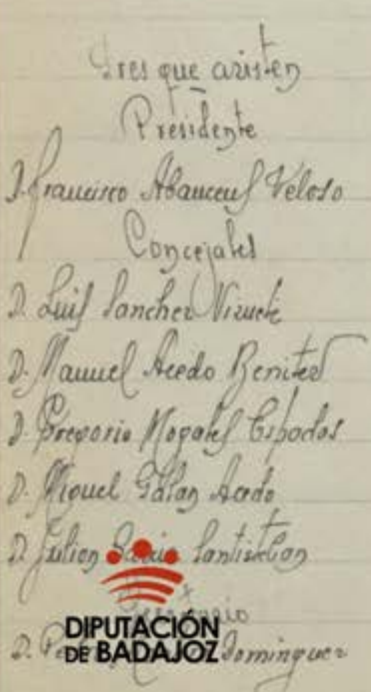 Sres que asisten
Presidente
D. Francisco Abauceuf Veloso
Concejales
D. Luis Sanchez Vizuete
D. Manuel Acedo Benitez
D. Gregorio Nogales
D. Miguel Galan Acedo
D. Julian Garcia
Secretario
DIPUTACIÓN
DE BADAJOZ
D. Dominguez